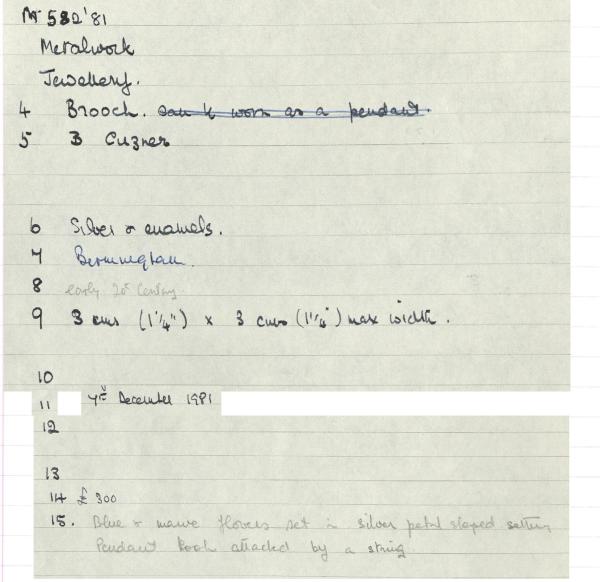 M 582'81
Metalwork
Jewellery.
4 Brooch. can be worn as a pendant.
5 B Cuzner
6 Silver & enamels.
7 Birmingham.
8 early 20th Century.
9 3 cms (1¼") x 3 cms (1¼") max width.
10
11 7th December 1981
12
13
14 £300
15. Blue & mauve flowers set in silver petal shaped setting
Pendant hook attached by a string